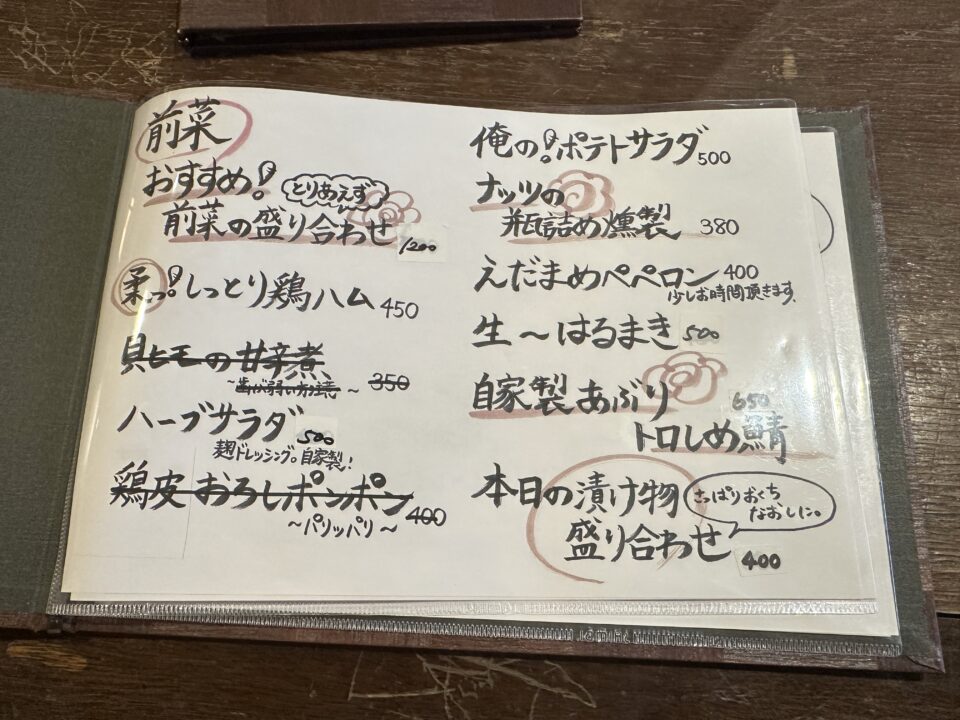 前菜
おすすめ!
とりあえず
前菜の盛り合わせ 1200
柔っ!しっとり鶏ハム 450
貝ヒモの甘辛煮
350
ハーブサラダ 500
麹ドレッシング。自家製!
鶏皮おろしポンポン
〜パリッパリ〜 400
俺の!ポテトサラダ 500
ナッツの
瓶詰め燻製 380
えだまめペペロン 400
少しお時間頂きます
生〜はるまき 500
自家製あぶり 650
トロしめ鯖
本日の漬け物
盛り合わせ 400
ちっぱりおくち
なおしに。